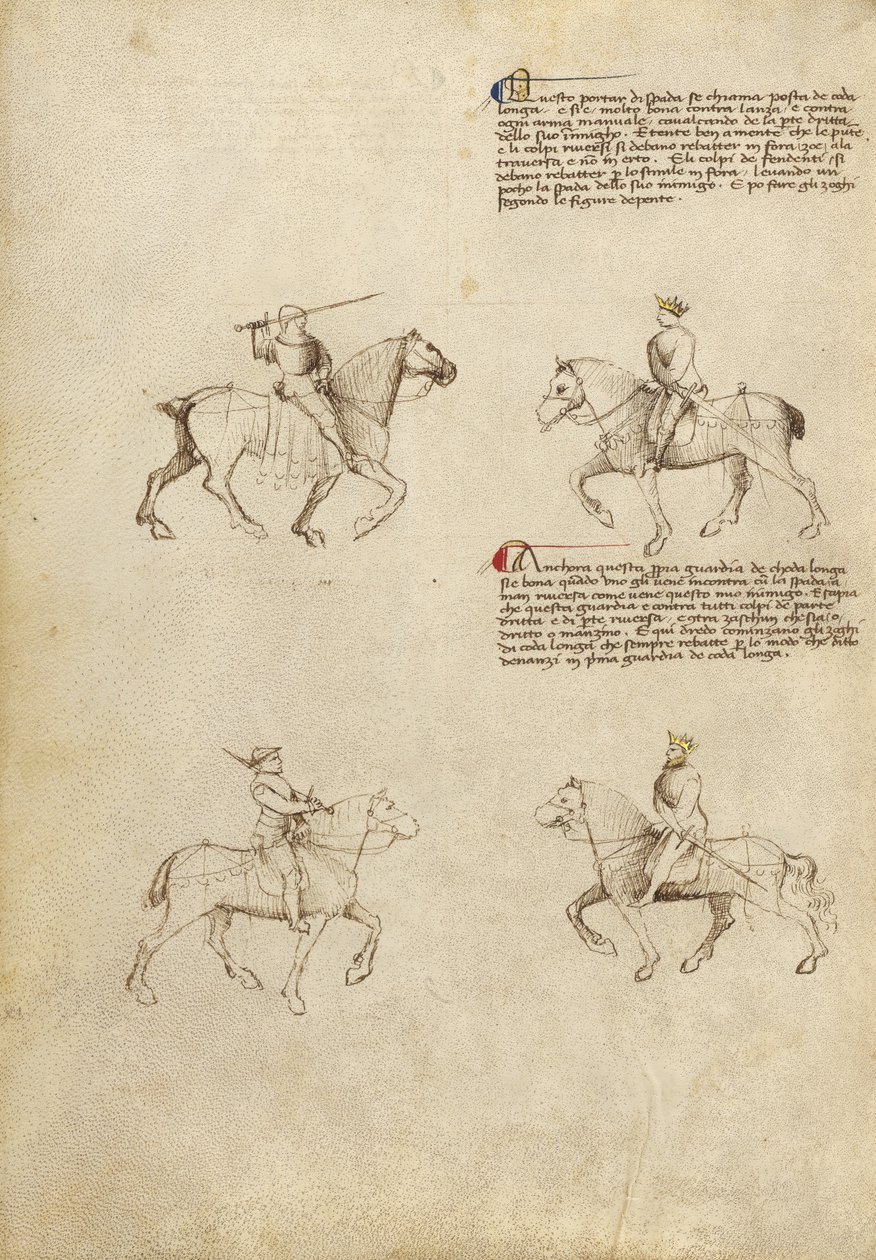 Questo portar di spada se chiama posta de coda
longa, e si e molto bona contra lanza, e contra
ogni arma manuale, cavalcando de la pte dritta
dello suo inimigho. E tente ben a mente che le pūte
e li colpi riversi si debano rebatter in fora, zoe, ala
traversa e nō in erto. E li colpi de fendenti, si
debano rebatter p lo simile in fora, levando un
pocho la spada dello suo inimigo. E po fare gli zoghi
segondo le figure depente.
Anchora questa ppria guardia de choda longa
si e bona quādo uno gli vene incontra cū la spada, a
man riversa come vene questo mio inimigo. E sapia
che questa guardia e contra tutti colpi de parte
dritta e di pte riversa, e cōtra zaschun che sia, o,
dritto o manzino. E qui dredo cominzano gli zoghi
di coda longa che sempre rebatte p lo modo che ditto
denanzi in pma guardia de coda longa.